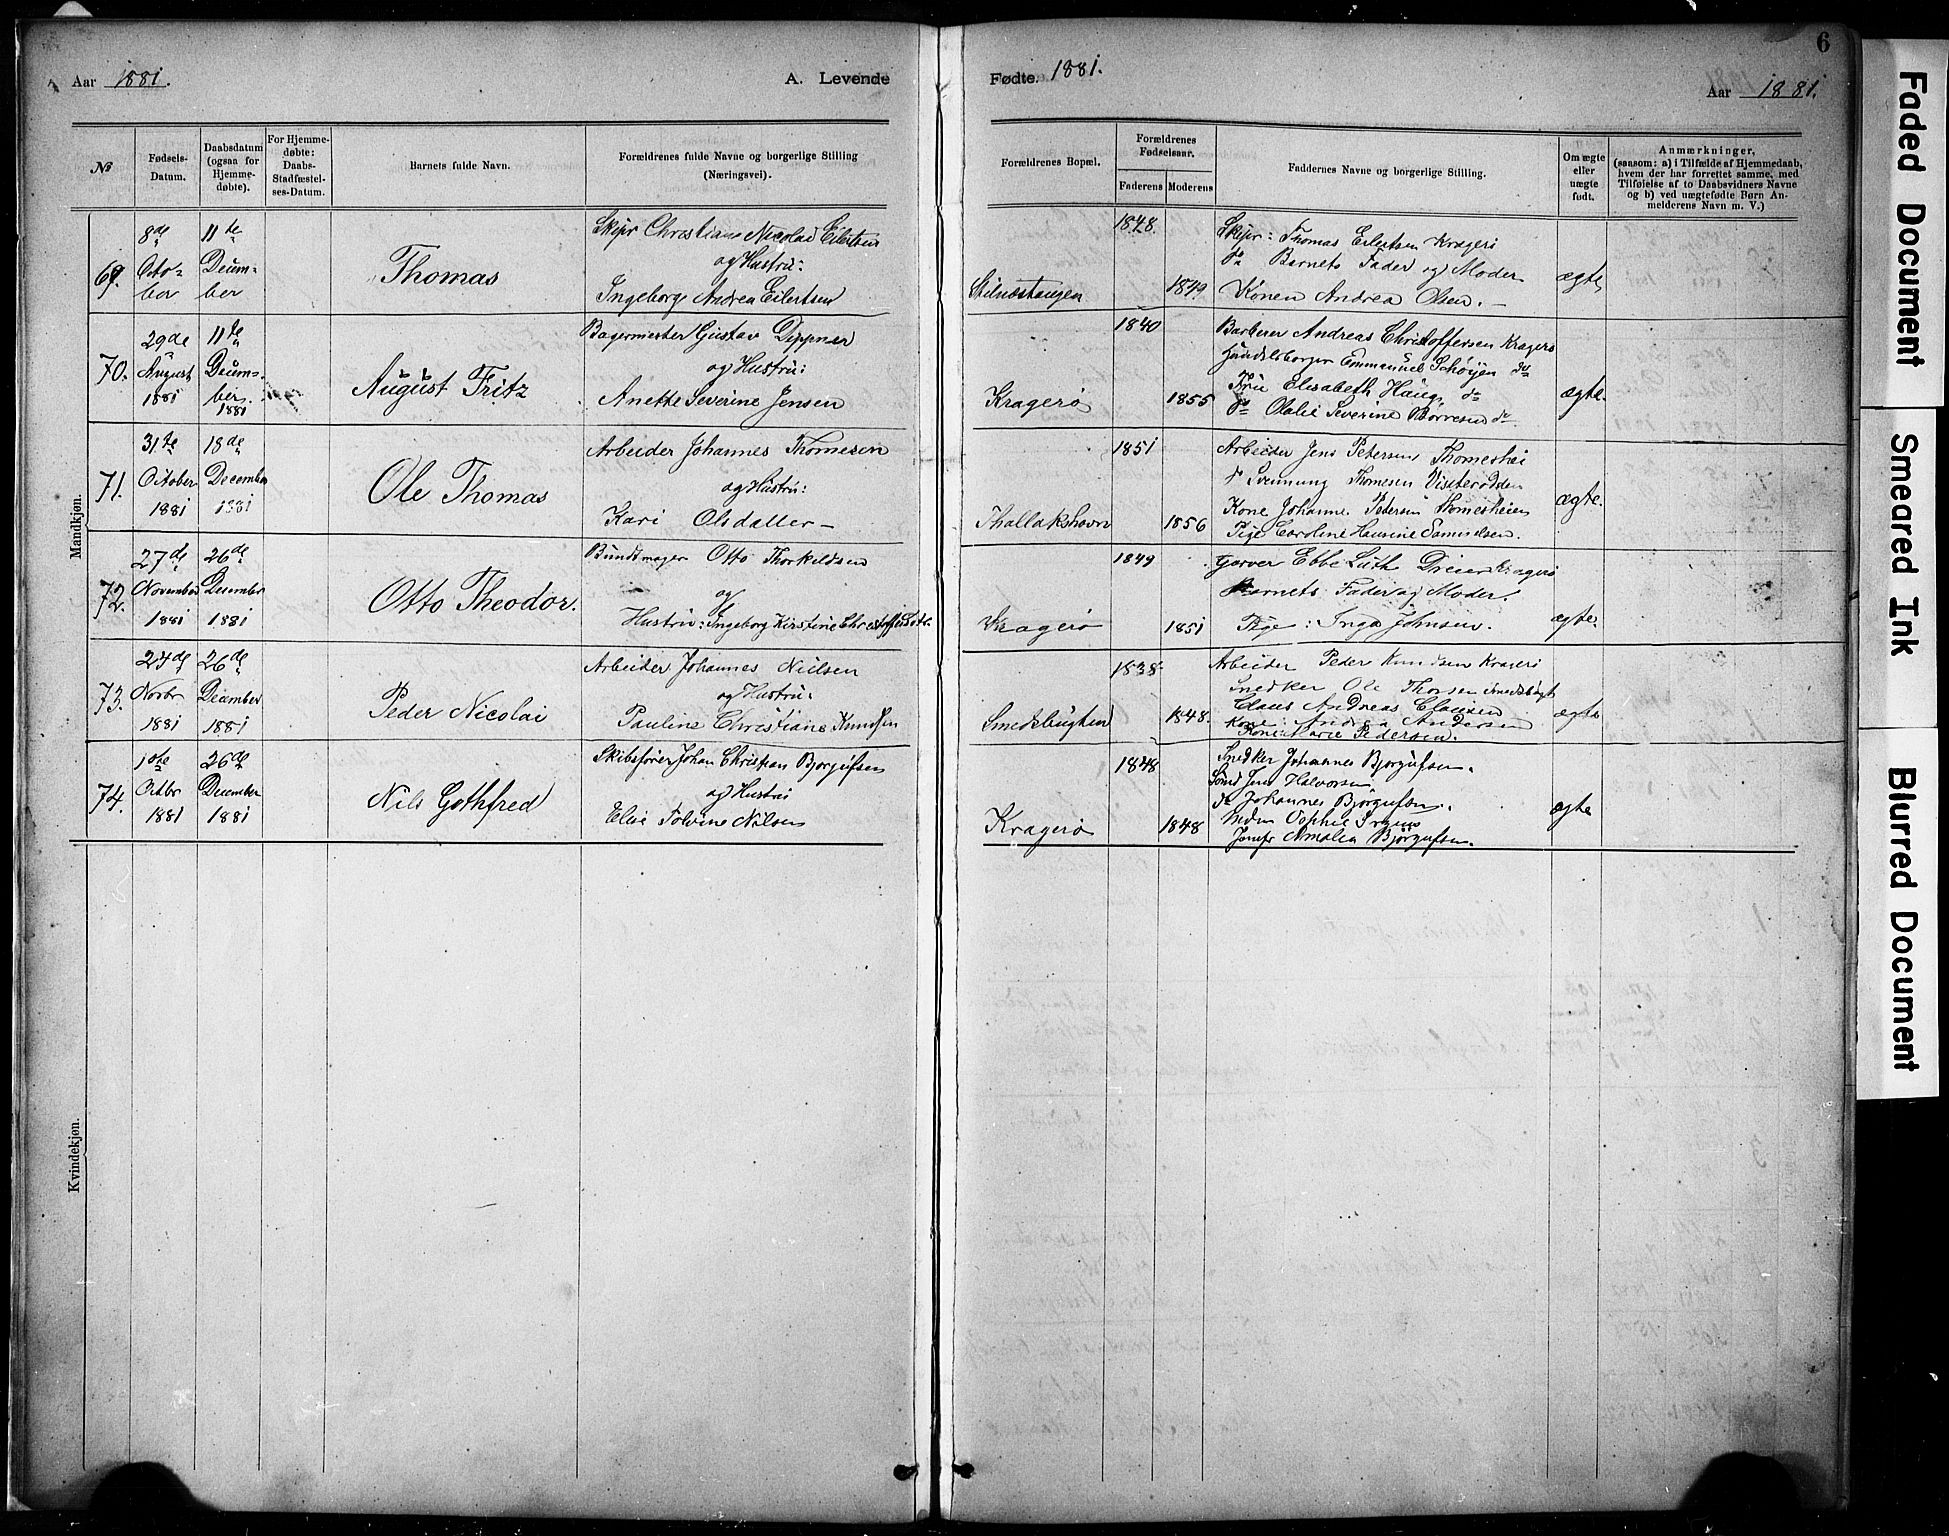 6
Aar 1881.
A. Levende
Fødte. 1881.
Aar 1881.
№
Fødsels-
Datum.
Daabsdatum
(ogsaa for
Hjemme-
døbte).
For Hjemme-
døbte:
Daabs-
Stadfæstel-
ses-Datum.
Barnets fulde Navn.
Forældrenes fulde Navne og borgerlige Stilling
(Næringsvei).
Forældrenes Bopæl.
Forældrenes
Fødselsaar.
Faderens
Moderens
Faddernes Navne og borgerlige Stilling.
Om ægte
eller
uægte
født.
Anmærkninger,
(saasom: a) i Tilfælde af Hjemmedaab,
hvem der har forrettet samme, med
Tilføielse af to Daabsvidners Navne
og b) ved uægtefødte Børn An-
melderens Navn m. V.)
Mandkjøn.
69.
8de
Octo-
ber
11te
Decem-
ber
Thomas
Skipr Christiane Nicolai Eilertsen
og Hustru:
Ingeborg Andrea Eilertsen
1848.
1849
Skipr: Thomas Eilertsen Kragerø
Barnets Fader og Moder
Konen Andrea Olsen.
ægte
70.
29de
August
1881
11te
Decem-
ber
1881
August Fritz
Bagermester Gustav Dippner
og Hustru:
Anette Severine Jensen
Kragerø
1840
1855
Barberer Andreas Christoffersen Kragerø
Handelsborger Emmanuel Schøyen do
Fru Elisabeth Haug, do
do Olalie Severine Børresen do
ægte.
71.
31te
October
1881
18de
December
1881
Ole Thomas
Arbeider Johannes Thomesen
og Hustru:
Kari Olsdatter
Thallakshavn
1851
1856
Arbeider Jens Petersen Thomeshei
Svennung Thomesen
Kone Johanne Pedersen Thomesheien
Pige Caroline Hansine Samuelsen.
ægte.
72.
27de
November
1881
26de
December
1881
Otto Theodor.
Bundtmager Otto Thorkildsen
og
Hustru: Ingeborg Kirstine
Kragerø
1849
1851
Garver Ebbe Luth Dreier Kragerø
Barnets Fader og Moder.
Pige: Inga Johnsen.
ægte.
73.
24de
Novbr
1881
26de
December
1881
Peder Nicolai
Arbeider Johannes Nielsen
og Hustru:
Pauline Christiane Knudsen
Smedsbugten
1838
1848.
Arbeider Peder Knudsen Kragerø
Snedker Ole Thorsen Smedsbugt
Claus Andreas Clausen
Kone: Andrea Andersen
Kone: Marie Pedersen.
ægte
74.
1ste
Octbr
1881
26de
December
1881
Nils Gothfred
Skibsfører Johan Christian Bjorgufsen
og Hustru
Elise Tolvine Nilsen
Kragerø
1848
1848
Snedker Johannes Bjorgufsen.
Jens Halvorsen
do Johannes Bjørgufsen.
Sophie
Jomfr Amalia Bjørgufsen.
ægte
Kvindekjøn.
Faded Document
Smeared Ink
Blurred Document